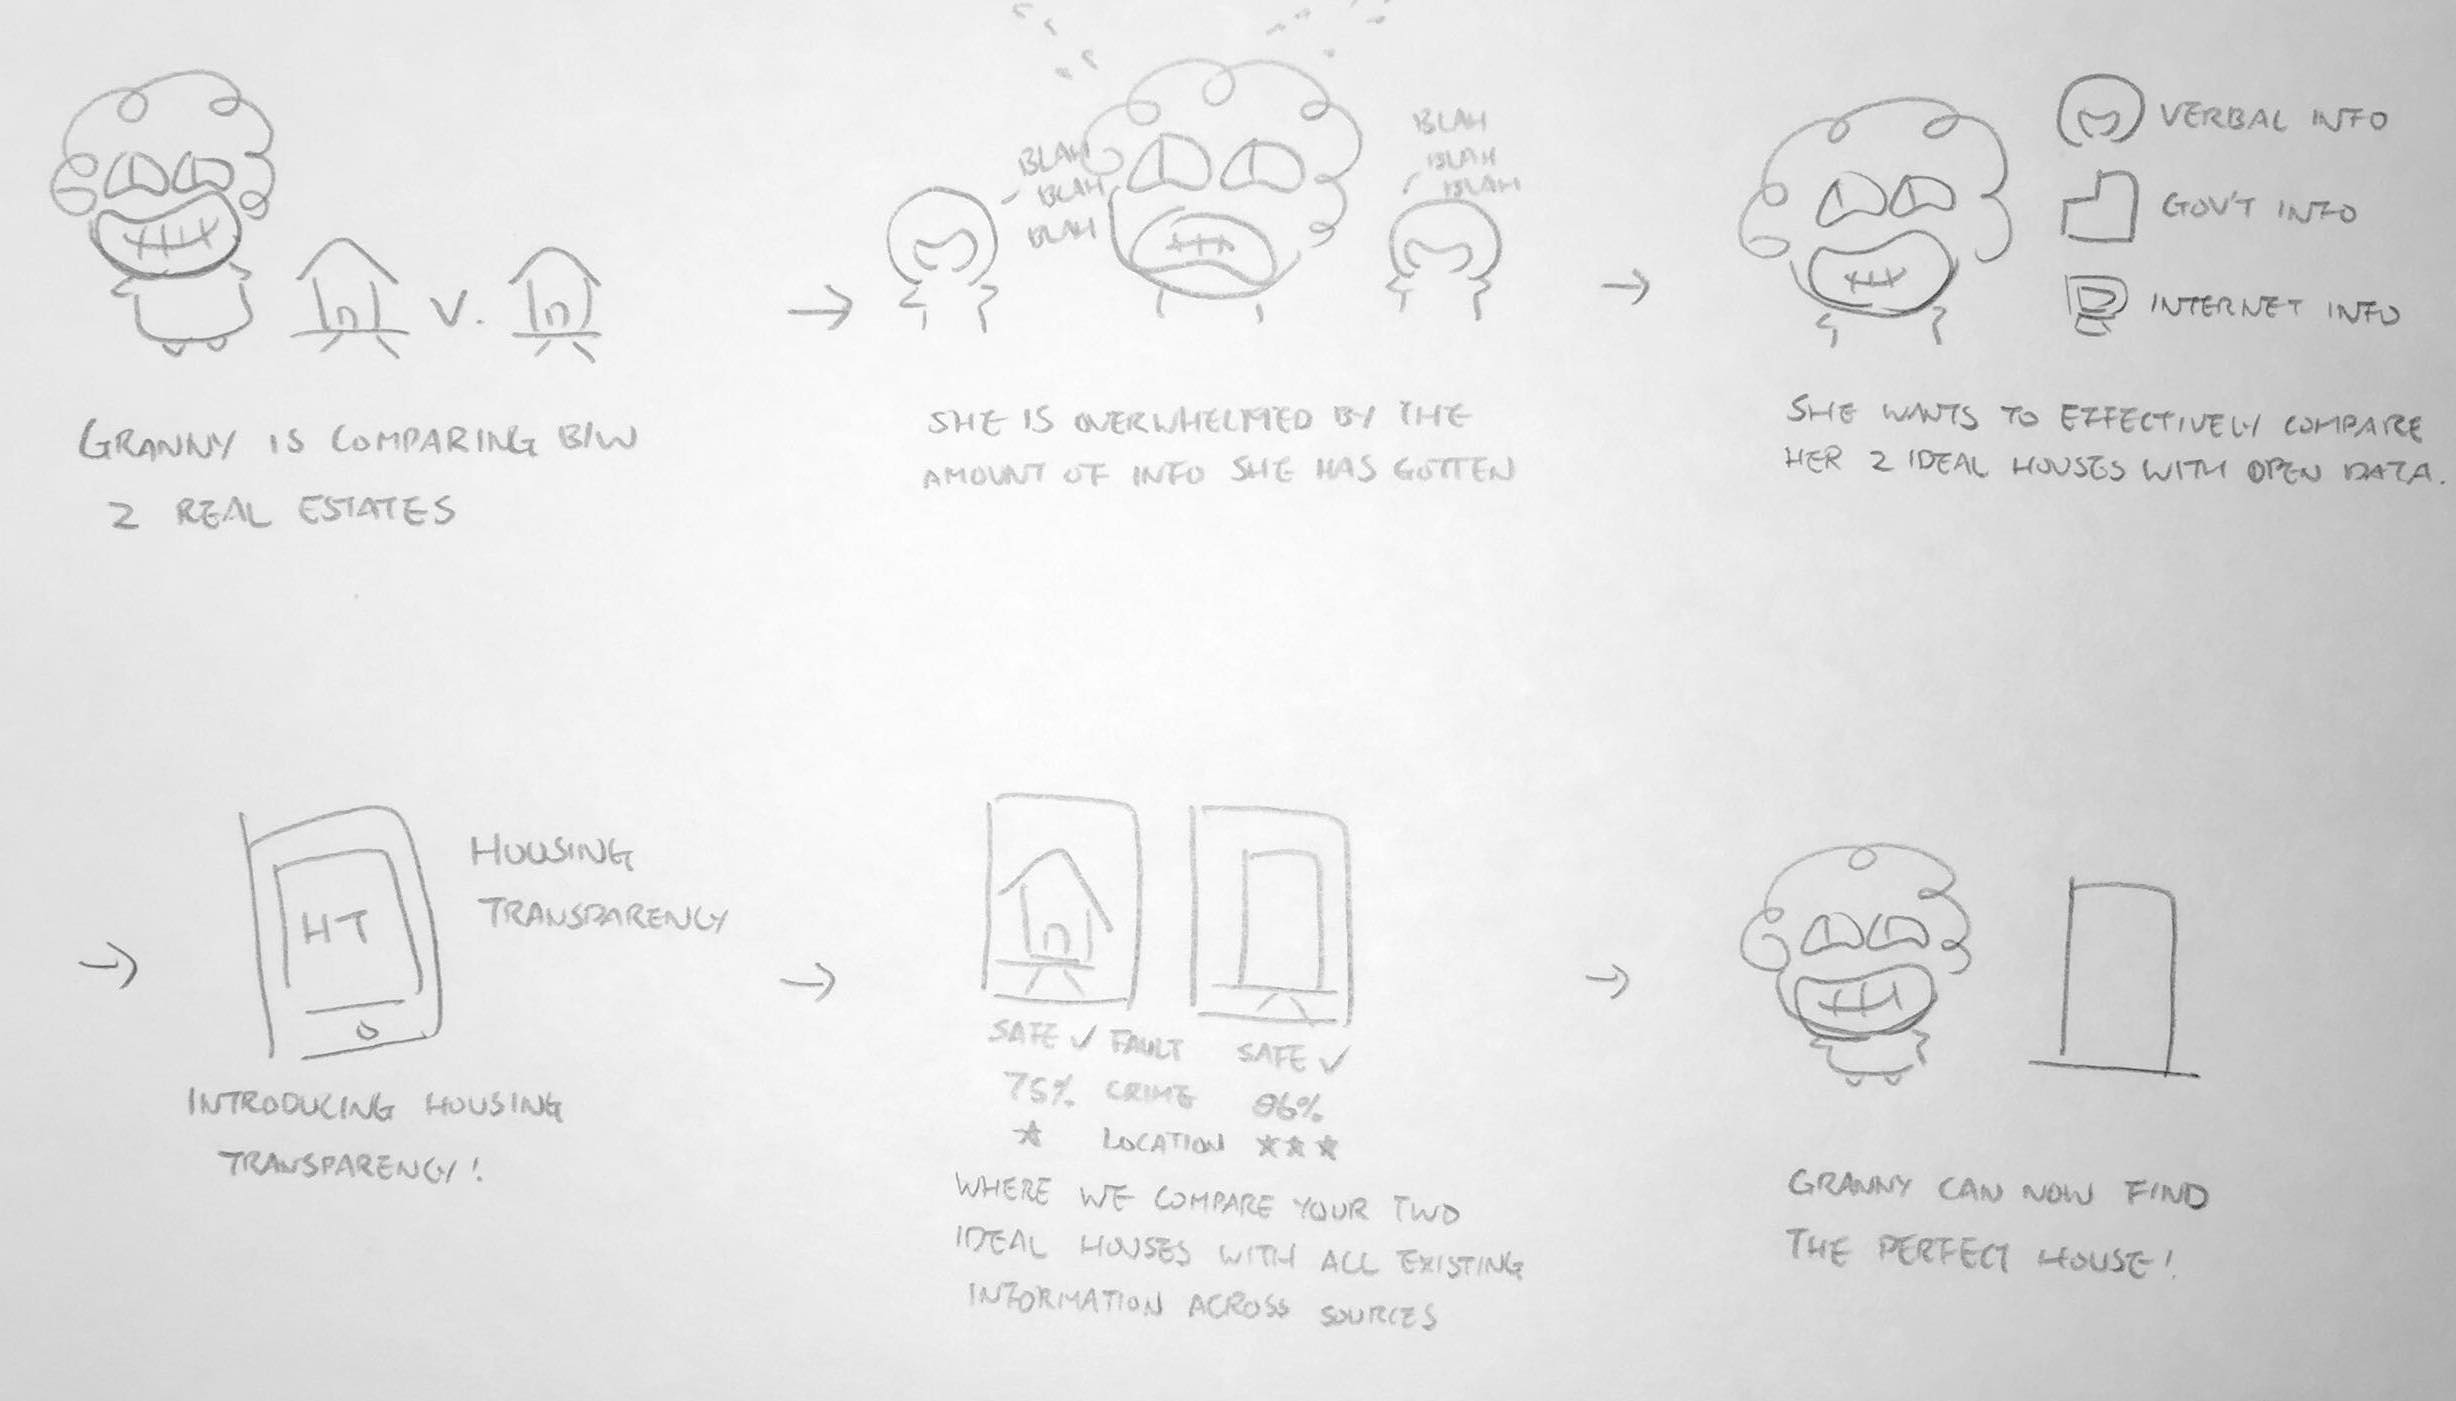 V.
GRANNY IS COMPARING B/W
2 REAL ESTATES
BLAH
BLAH
BLAH
BLAH
BLAH
BLAH
SHE IS OVERWHELMED BY THE
AMOUNT OF INFO SHE HAS GOTTEN
VERBAL INFO
GOV'T INFO
INTERNET INFO
SHE WANTS TO EFFECTIVELY COMPARE
HER 2 IDEAL HOUSES WITH OPEN DATA.
HT
HOUSING
TRANSPARENCY
INTRODUCING HOUSING
TRANSPARENCY!
SAFE ✓ FAULT SAFE ✓
75% CRIME 86%
★ LOCATION ★★★
WHERE WE COMPARE YOUR TWO
IDEAL HOUSES WITH ALL EXISTING
INFORMATION ACROSS SOURCES
GRANNY CAN NOW FIND
THE PERFECT HOUSE!